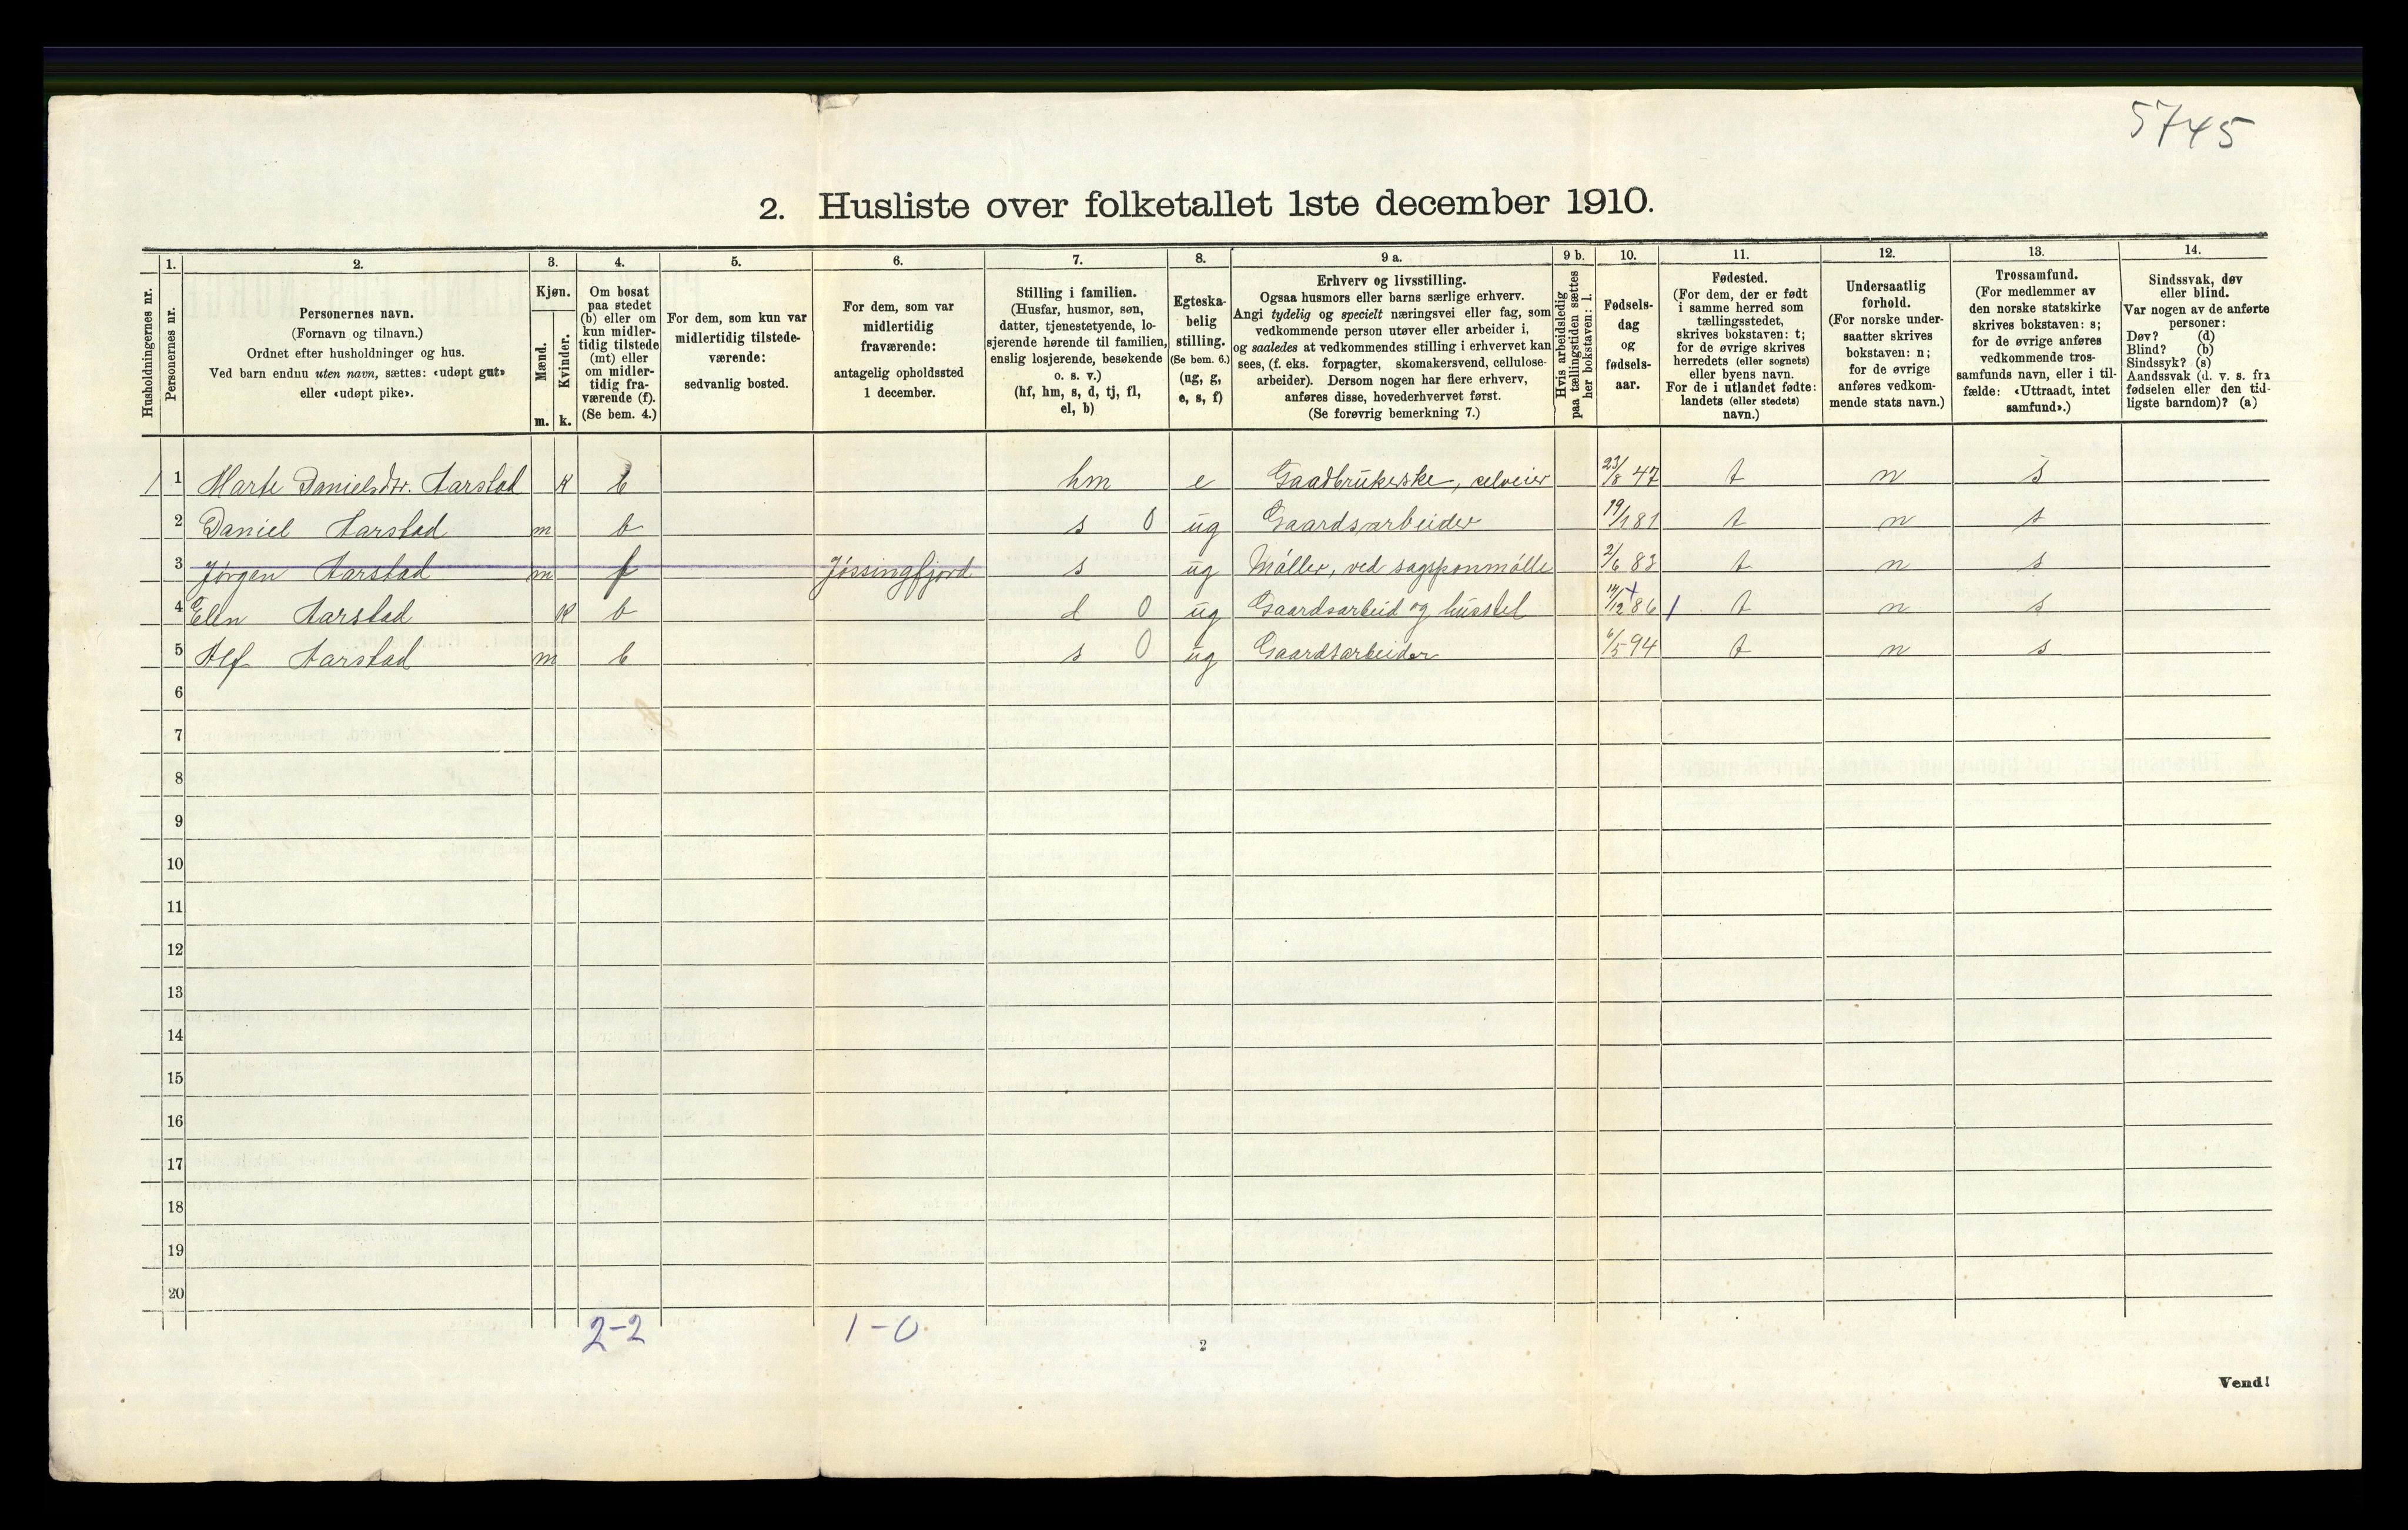 5745
2. Husliste over folketallet 1ste december 1910.
Husholdningernes nr.
1.
Personernes nr.
2.
Personernes navn.
(Fornavn og tilnavn.)
Ordnet efter husholdninger og hus.
Ved barn endnu uten navn, sættes: «udøpt gut»
eller «udøpt pike».
3.
Kjøn.
Mænd.
Kvinder.
m. k.
4.
Om bosat
paa stedet
(b) eller om
kun midler-
tidig tilstede
(mt) eller
om midler-
tidig fra-
værende (f).
(Se bem. 4.)
5.
For dem, som kun var
midlertidig tilstede-
værende:
sedvanlig bosted.
6.
For dem, som var
midlertidig
fraværende:
antagelig opholdssted
1 december.
7.
Stilling i familien.
(Husfar, husmor, søn,
datter, tjenestetyende, lo-
sjerende hørende til familien,
enslig losjerende, besøkende
o. s. v.)
(hf, hm, s, d, tj, fl,
el, b)
8.
Egteska-
belig
stilling.
(Se bem. 6.)
(ug, g,
e, s, f)
9 a.
Erhverv og livsstilling.
Ogsaa husmors eller barns særlige erhverv.
Angi tydelig og specielt næringsvei eller fag, som
vedkommende person utøver eller arbeider i,
og saaledes at vedkommendes stilling i erhvervet kan
sees, (f. eks. forpagter, skomakersvend, cellulose-
arbeider). Dersom nogen har flere erhverv,
anføres disse, hovederhvervet først.
(Se forøvrig bemerkning 7.)
9 b.
Hvis arbeidsledig
paa tællingstiden sættes
her bokstaven: l.
10.
Fødsels-
dag
og
fødsels-
aar.
11.
Fødested.
(For dem, der er født
i samme herred som
tællingsstedet,
skrives bokstaven: t;
for de øvrige skrives
herredets (eller sognets)
eller byens navn.
For de i utlandet fødte:
landets (eller stedets)
navn.)
12.
Undersaatlig
forhold.
(For norske under-
saatter skrives
bokstaven: n;
for de øvrige
anføres vedkom-
mende stats navn.)
13.
Trossamfund.
(For medlemmer av
den norske statskirke
skrives bokstaven: s;
for de øvrige anføres
vedkommende tros-
samfunds navn, eller i til-
fælde: «Uttraadt, intet
samfund».)
14.
Sindssvak, døv
eller blind.
Var nogen av de anførte
personer:
Døv? (d)
Blind? (b)
Sindssyk? (s)
Aandssvak (d. v. s. fra
fødselen eller den tid-
ligste barndom)? (a)
1 1 Marte Danielsdtr. Aarstad K b hm e Gaadbrukerske, selveier 23/8 47 t n s
2 Daniel Aarstad m b s 0 ug Gaardsarbeider 19/1 81 t n s
3 Jørgen Aarstad m f Jøssingfjord s ug Møller, ved sagsponmølle 2/6 83 t n s
4 Elen Aarstad K b d 0 ug Gaardsarbeid og husstel /12 86 t n s
5 Alf Aarstad m b s 0 ug Gaardsarbeider 6/5 94 t n s
6
7
8
9
10
11
12
13
14
15
16
17
18
19
20
2-2 1-0
2
Vend!